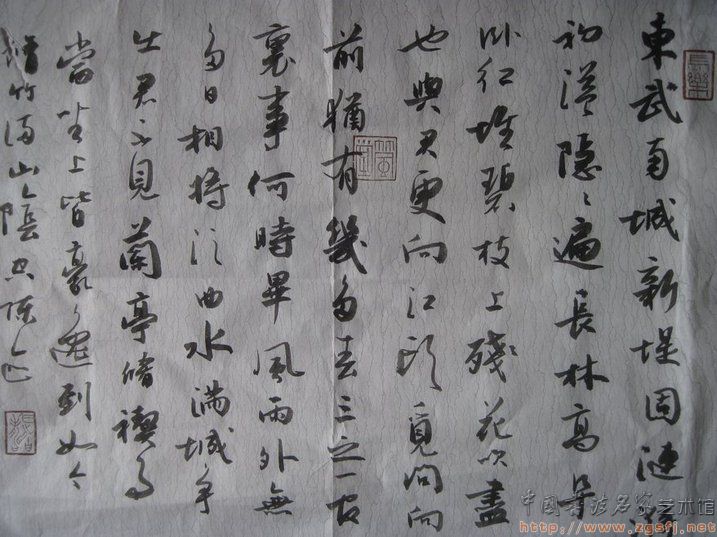 東武南城新堤固漣漪
初溢隱々遍長林高阜
卧紅堆碧枝上殘花吹盡
也與君更向江頭覓問向
前猶有幾多春三之一官
裏事何時畢風雨外無
多日相將泛曲水滿城爭
出君不見蘭亭脩禊事
當坐上皆豪逸到如今
脩竹滿山陰空陳迹
http://www.zgsfj.net